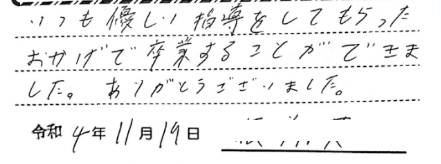 いつも優しい指導をしてもらった
おかげで卒業することができま
した。ありがとうございました。
令和4年11月19日